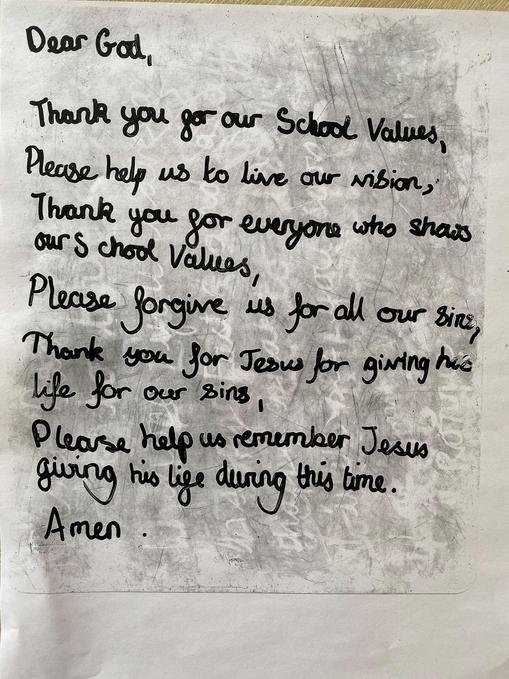 Dear God,
Thank you for our School Values,
Please help us to live our vision,
Thank you for everyone who shows
our School Values,
Please forgive us for all our sins,
Thank you for Jesus for giving his
life for our sins,
Please help us remember Jesus
giving his life during this time.
Amen.